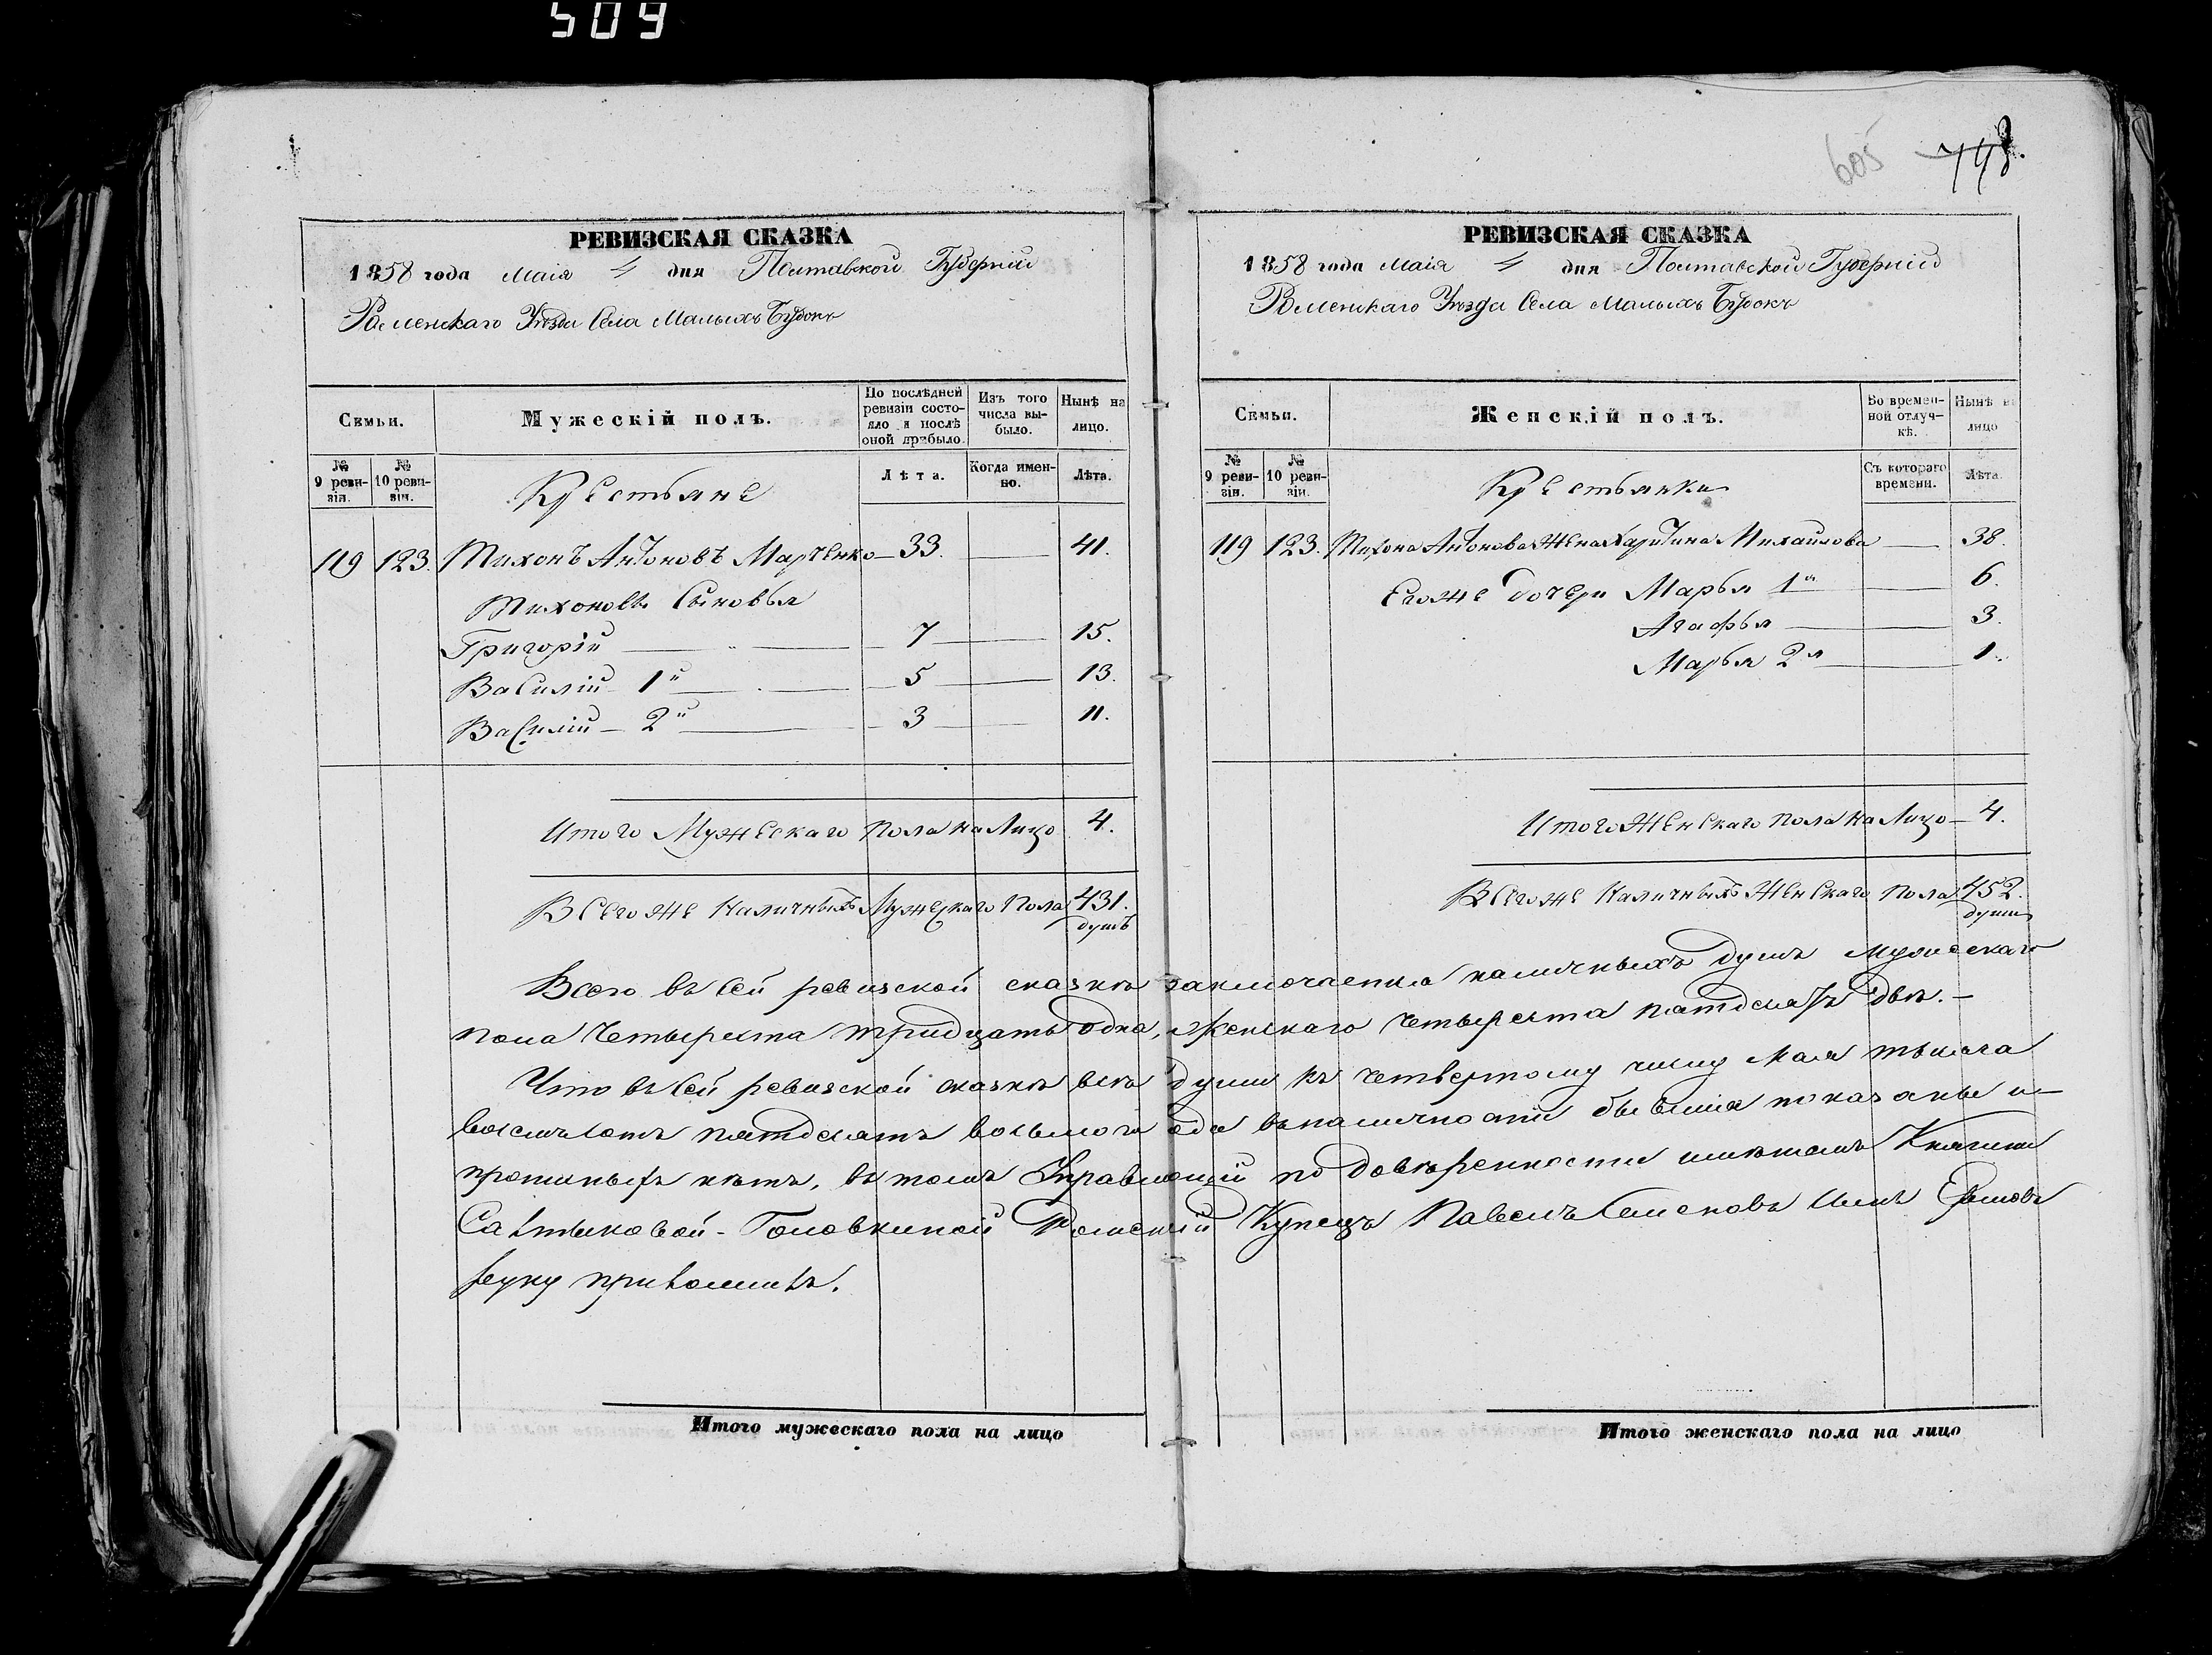 509
605 748.
РЕВИЗСКАЯ СКАЗКА
1858 года Маія 4 дня Полтавской Губерніи
Роменскаго Уѣзда Села Малыхъ Будокъ
Семьи.
Мужескій полъ.
По послѣдней ревизіи состояло и послѣ оной прибыло.
Изъ того числа выбыло.
Нынѣ на лицо.
№ 9 ревизіи.
№ 10 ревизіи.
Крестьяне
Лѣта.
Когда именно.
Лѣта.
119 123. Тихонъ Антоновъ Марченко 33. 41.
Тихоновы Сыновья
Григорій 7 15.
Василій 1й 5 13.
Василій 2й 3 11.
Итого Мужескаго пола на Лицо 4.
Всего же Наличныхъ Мужескаго пола 431.
душъ
РЕВИЗСКАЯ СКАЗКА
1858 года Маія 4 дня Полтавской Губерніи
Роменскаго Уѣзда Села Малыхъ Будокъ
Семьи.
Женскій полъ.
Во временной отлучкѣ.
Нынѣ на лицо
№ 9 ревизіи.
№ 10 ревизіи.
Крестьянки
Съ котораго времени.
Лѣта.
119 123. Тихона Антонова Жена Харитина Михайлова 38.
Его же дочери Марья 1я 6.
Агафья 3.
Марья 2я 1.
Итого Женскаго пола на Лицо 4.
Всего же Наличныхъ Женскаго пола 452.
души
Всего въ сей ревизской сказкѣ заключается наличныхъ душъ мужескаго
пола четыреста тридцать одна, женскаго четыреста пятдесятъ двѣ.
Что въ сей ревизской сказкѣ всѣ души къ четвертому числу Мая тысяча
восемьсотъ пятдесятъ восьмого года въ наличности бывшія показаны и
прописныхъ нѣтъ, въ томъ Управляющій по довѣренности имѣніемъ Княгини
Салтыковой-Головкиной Роменскій Купецъ Павелъ Семеновъ Сынъ
руку приложилъ.
Итого мужескаго пола на лицо
Итого женскаго пола на лицо